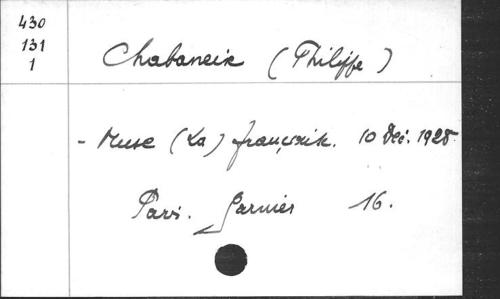 430
131
1
Chabaneix (Philippe)
- Muse (La) française. 10 Déc. 1925
Paris. Garnier 16.